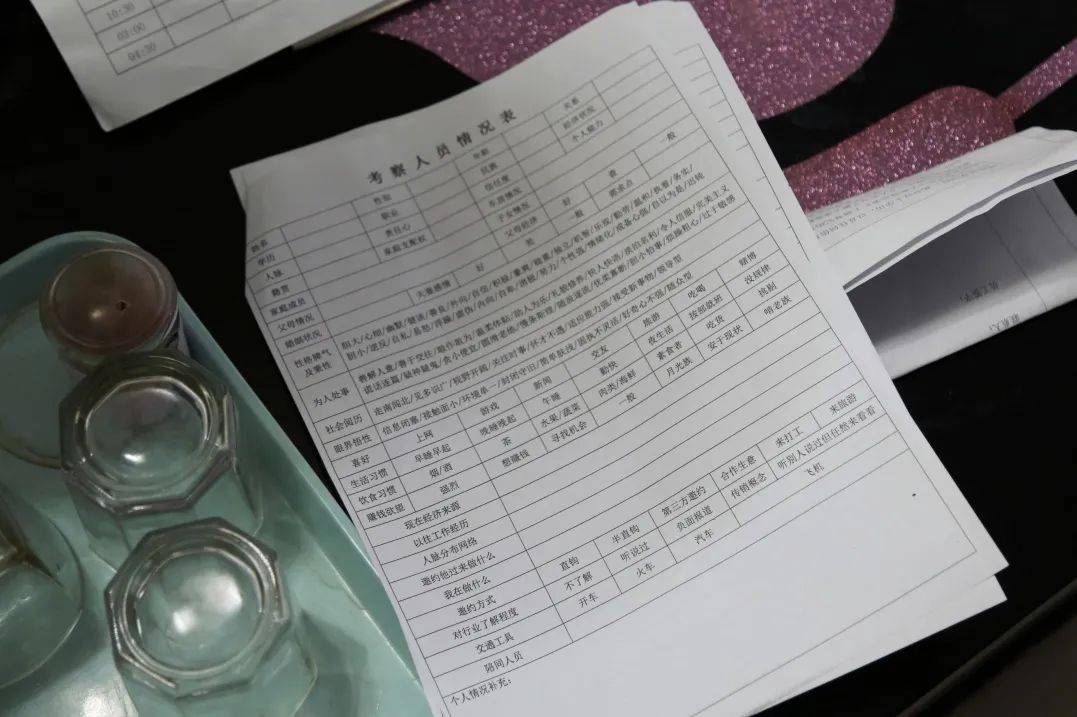 10:30
03:00
04:30
考察人员情况表
姓名 性别 年龄 关系
学历 职业 民族 经济状况
人脉 责任心 信任度 个人能力
籍贯 家庭支配权 生活情况
家庭成员 子女情况 好 查 一般
父母情况 夫妻感情 好 父母经济 一般 需求点
婚姻状况 差
性格脾气及秉性
胆大/心细/幽默/健谈/善良/外向/自信/积极/重爽/稳重/独立/机智/乐观/勤劳/温和/执着/务实/
胆小/逆反/自私/易怒/浮躁/虚伪/内向/自卑/消极/势力/个性强/情绪化/戒备心强/自以为是/出钝
为人处事
善解人意/善于交往/敢作敢为/温柔体贴/助人为乐/礼貌修养/快人快语/淡泊名利/令人信服/完美主义
谎话连篇/疑神疑鬼/贪小便宜/圆滑老练/慢条斯理/随波逐流/优柔寡断/胆小怕事/烦躁粗心/过于敏感
社会阅历 走南闯北/见多识广/视野开阔/关注时事/怀才不遇/适应能力强/接受新事物/领导型
眼界悟性 信息闭塞/接触面小/环境单一/封闭守旧/简单肤浅/固执不灵活/好奇心不强/随众型
喜好 上网 游戏 新闻 交友 旅游 吃喝 赌博
生活习惯 早睡早起 晚睡晚起 午睡 勤快 夜生活 按部就班 没规律
饮食习惯 烟/酒 茶 水果/蔬菜 肉类/海鲜 素食者 吃货 挑剔
赚钱欲望 强烈 想赚钱 寻找机会 一般 月光族 安于现状 啃老族
现在经济来源
以往工作经历
人脉分布网络
邀约他过来做什么
我在做什么
邀约方式 直钩 半直钩 第三方邀约 合作生意 来打工 来旅游
对行业了解程度 不了解 听说过 负面报道 传销概念 听别人说过但任然来看看
交通工具 开车 火车 汽车 飞机
陪同人员
个人情况补充：